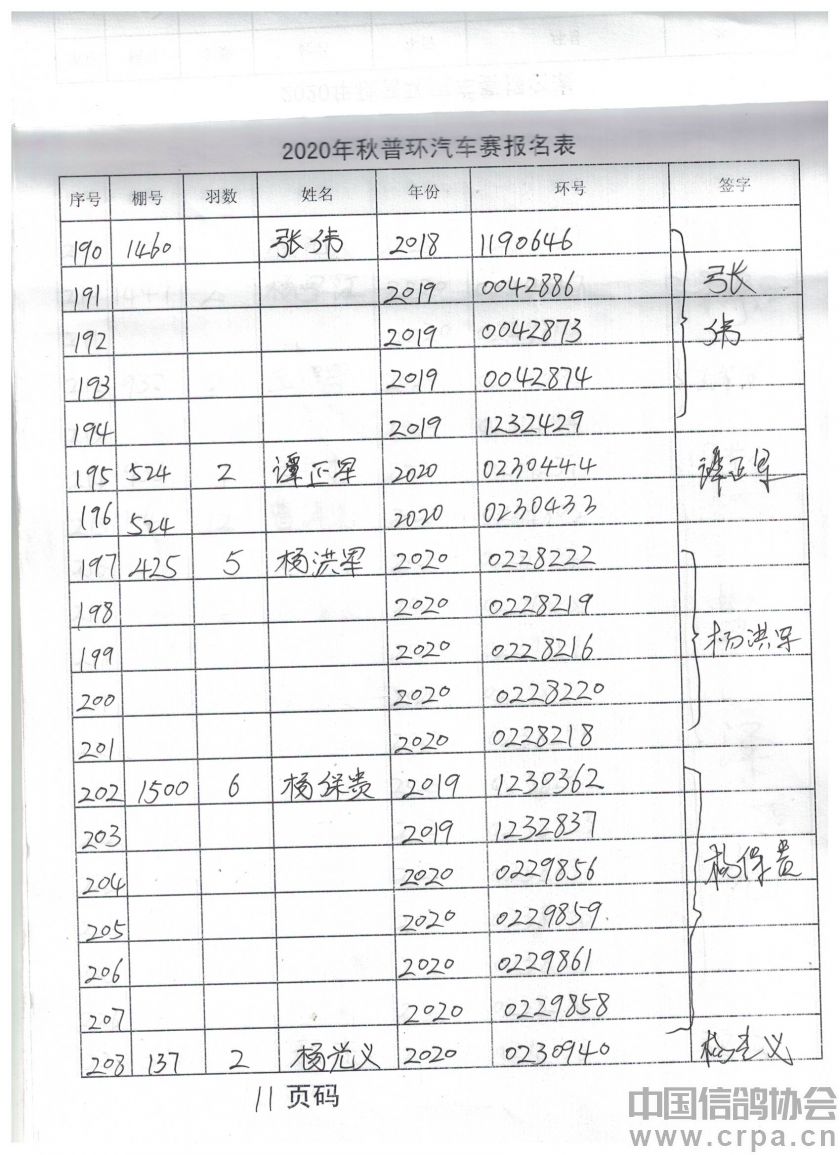 2020年秋普环汽车赛报名表
序号 棚号 羽数 姓名 年份 环号 签字
190 1460 张伟 2018 1190646
191 2019 0042886 张
192 2019 0042873 伟
193 2019 0042874
194 2019 1232429
195 524 2 谭正军 2020 0230444 谭正军
196 524 2020 0230433
197 425 5 杨洪军 2020 0228222
198 2020 0228219
199 2020 0228216 杨洪军
200 2020 0228220
201 2020 0228218
202 1500 6 杨保贵 2019 1230362
203 2019 1232837
204 2020 0229856 杨保贵
205 2020 0229859
206 2020 0229861
207 2020 0229858
208 137 2 杨光义 2020 0230940 杨光义
11 页码
中国信鸽协会
www.crpa.cn